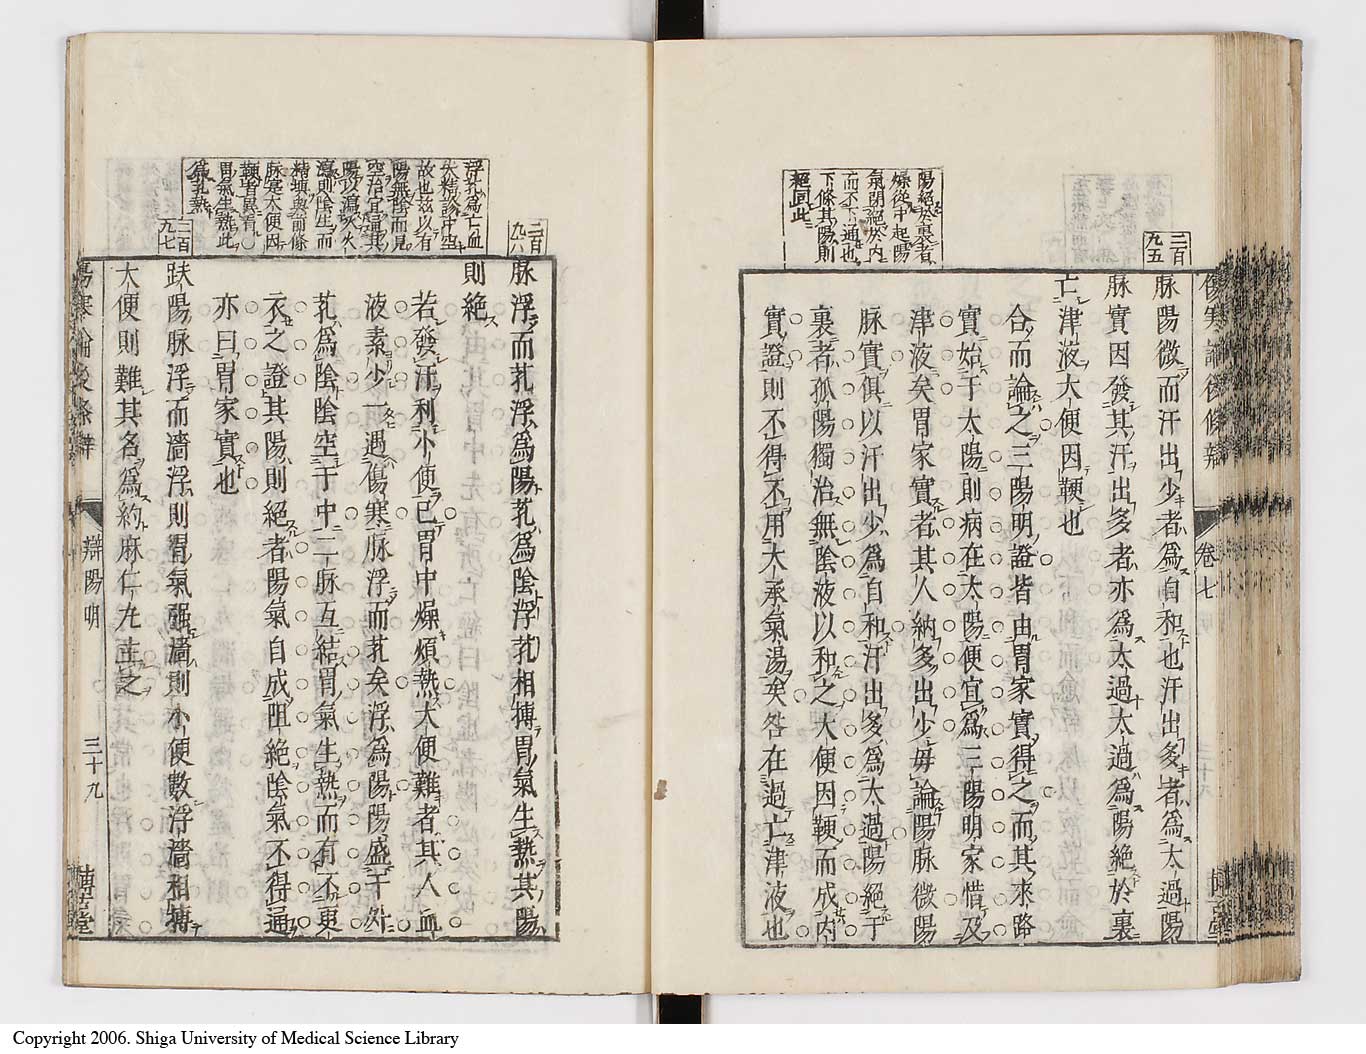 傷寒論後條辯
卷七
二百九五
脉陽微而汗出少者爲自和也汗出多者爲太過陽
脉實因發其汗出多者亦爲太過太過爲陽絕於裏
亡津液大便因鞕也
陽絕於裏者
燥從中起陽
氣閉絕於内
而不下通也
下條其陽則
絕同此
合而論之三陽明證皆由胃家實得之而其來路
實始于太陽則病在太陽便宜爲三陽明家惜及
津液矣胃家實者其人納多出少毋論陽脉微陽
脉實俱以汗出少爲自和汗出多爲太過陽絕于
裏者孤陽獨治無陰液以和之大便因鞕而成内
實證則不得不用大承氣湯矣咎在過亡津液也
二百九六
脉浮而芤浮爲陽芤爲陰浮芤相搏胃氣生熱其陽
則絕
浮芤爲亡血
失精診中空
故也茲以有
陽無陰而見
空治宜
陽以瀉火火
瀉則陰生而
精填與前條
脉寒大便因
鞕者異看〇
胃氣生熱此
爲乳熱
若發汗利小便已胃中燥煩熱大便難者其人血
液素少一遇傷寒脉浮而芤矣浮爲陽陽盛于外
芤爲陰陰空于中二脉互結胃氣生熱而有不更
衣之證其陽則絕者陽氣自成阻絕陰氣不得通
亦曰胃家實也
二百九七
趺陽脉浮而濇浮則胃氣强濇則小便數浮濇相搏
大便則難其名爲約麻仁丸主之
傷寒論後條辯
辯陽明
三十九
博古堂
Copyright 2006. Shiga University of Medical Science Library